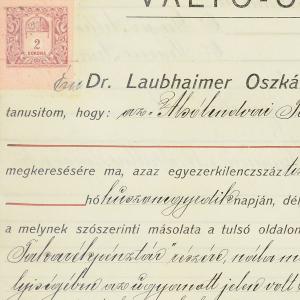 VÁLTÓ-Ó
2
KORONA
Én Dr. Laubhaimer Oszká
tanusitom, hogy: az Alsólendvai
megkeresésére ma, azaz egyezerkilenczszáz
hó huszonegyedik napján, dél
a melynek szószerinti másolata a tulsó oldalon
Takarékpénztár részére, nála
lyiségében az ugyanott jelen volt